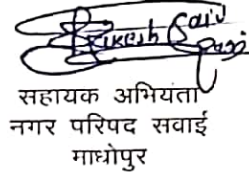 सहायक अभियंता
नगर परिपद सवाई
माधोपुर